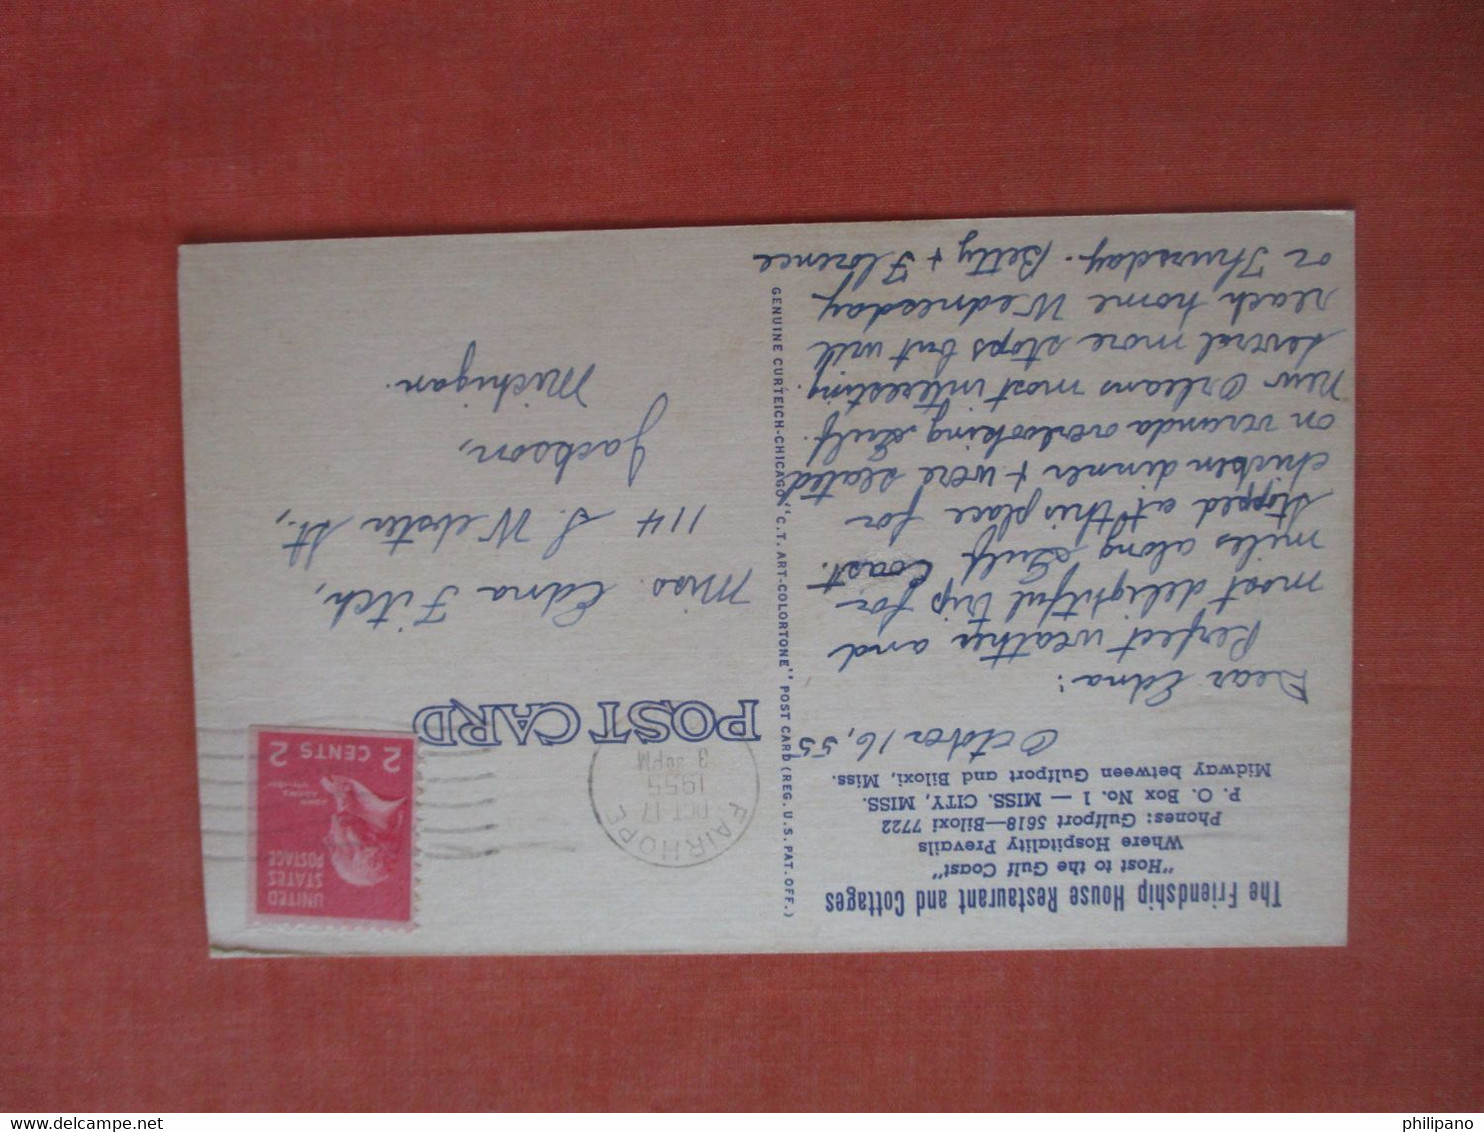 The Friendship House Restaurant and Cottages
"Host to the Gulf Coast"
Where Hospitality Prevails
Phones: Gulfport 5618—Biloxi 7722
P. O. Box No. 1 — MISS. CITY, MISS.
Midway between Gulfport and Biloxi, Miss.
October 16, 55
Dear Edna:
Perfect weather and
most delightful trip for
miles along Gulf Coast.
Stopped at this place for
chicken dinner + were seated
on veranda overlooking Gulf.
New Orleans most interesting.
Several more stops but will
reach home Wednesday
or Thursday. Betty + Florence
GENUINE CURTEICH-CHICAGO "C.T. ART-COLORTONE" POST CARD (REG. U.S. PAT. OFF.)
POST CARD
FAIRHOPE
OCT 17
1955
3 30 PM
UNITED
STATES
POSTAGE
JOHN
ADAMS
2 CENTS 2
Miss. Edna Fitch,
114 S. Webster St.,
Jackson,
Michigan.
delcampe.net
philipano